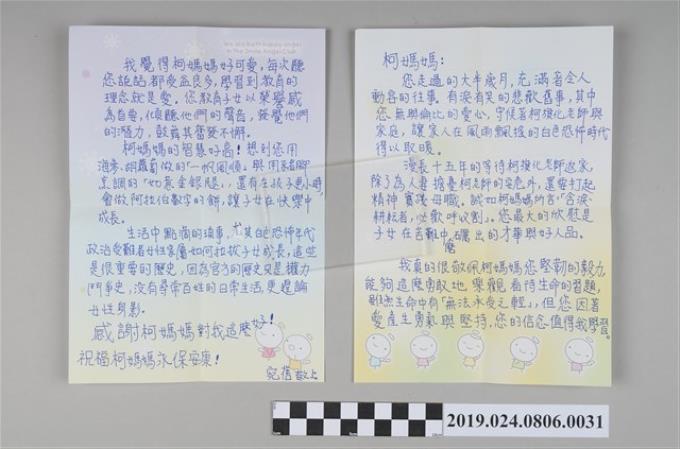 柯媽媽:
您走過的大半歲月,充滿著令人
動容的往事。有淚有笑的悲歡舊事,其中
您無與倫比的愛心,守候著柯旗化老師與
家庭,讓家人在風雨飄搖的白色恐怖時代
得以取暖。
漫長十五年的等待柯旗化老師返家,
除了為人妻擔憂柯老師的安危外,還要打起
精神實踐母職。誠如柯媽媽所言「含淚
耕耘者,必歡呼收割」。您最大的欣慰是
子女在苦難中磨礪出的才華與好人品。
我真的很敬佩柯媽媽您堅韌的毅力,
能夠這麼勇敢地、樂觀看待生命的習題,
雖然生命中有「無法承受之輕」,但您因著
愛產生勇氣與堅持,您的信念值得我學習。
We are Earth Happy Angel
In The Smile Angel Club
我覺得柯媽媽好可愛,每次聽
您說話都受益良多,學習到教育的
理念就是愛。您教育子女以榮譽感
為自愛,傾聽他們的聲音,發覺他們
的潛力,鼓舞其奮發不懈。
柯媽媽的智慧好高!想到您用
海參、胡蘿蔔做的「一帆風順」與用豬腳
烹調的「如意金銀腿」,還有在孩子小時
會做阿拉伯數字的餅,讓子女在快樂中
成長。
生活中點滴的瑣事,尤其白色恐怖年代
政治受難者女性家屬如何拉拔子女成長,這些
是很重要的歷史,因為官方的歷史只是權力
鬥爭史,沒有尋常百姓的日常生活,更遑論
女性身影。
感謝柯媽媽對我這麼好!
祝福柯媽媽永保安康!
宛蓓敬上
2019.024.0806.0031